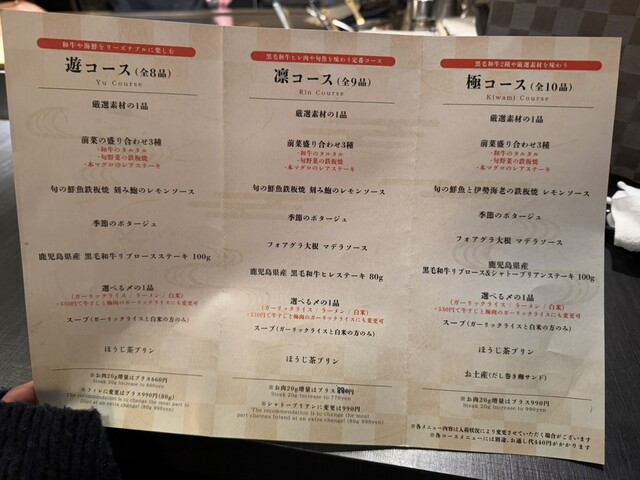 和牛や海鮮をリーズナブルに楽しむ
遊コース(全8品)
Yu Course
厳選素材の1品
前菜の盛り合わせ3種
・和牛のタルタル
・旬野菜の鉄板焼
・本マグロのレアステーキ
旬の鮮魚鉄板焼 刻み鮑のレモンソース
季節のポタージュ
鹿児島県産 黒毛和牛リブロースステーキ 100g
選べる〆の1品
(ガーリックライス / ラーメン / 白米)
・330円で牛すじと極肉のガーリックライスにも変更可
スープ(ガーリックライスと白米の方のみ)
ほうじ茶プリン
※お肉20g増量はプラス660円
Steak 20g increase to 660yen
※フィレに変更はプラス990円(80g)
The recommendation is to change the meat part to
fillet at an extra change! (80g 990yen)
黒毛和牛ヒレ肉や旬魚を味わう定番コース
凛コース(全9品)
Rin Course
厳選素材の1品
前菜盛り合わせ3種
・和牛のタルタル
・旬野菜の鉄板焼
・本マグロのレアステーキ
旬の鮮魚鉄板焼 刻み鮑のレモンソース
季節のポタージュ
フォアグラ大根 マデラソース
鹿児島県産 黒毛和牛ヒレステーキ 80g
選べる〆の1品
(ガーリックライス / ラーメン / 白米)
スープ(ガーリックライスと白米の方のみ)
ほうじ茶プリン
※お肉20g増量はプラス
Steak 20g increase to 770yen
※シャトーブリアンに変更は990円
The recommendation is to change the meat
part chateau briand at an extra change! (80g 990yen)
黒毛和牛2種や厳選素材を味わう
極コース(全10品)
Kiwami Course
厳選素材の1品
前菜盛り合わせ3種
・和牛のタルタル
・旬野菜の鉄板焼
・本マグロのレアステーキ
旬の鮮魚と伊勢海老の鉄板焼 レモンソース
季節のポタージュ
フォアグラ大根 マデラソース
鹿児島県産
黒毛和牛リブロース&シャトーブリアンステーキ 100g
選べる〆の1品
(ガーリックライス / ラーメン / 白米)
スープ(ガーリックライスと白米の方のみ)
ほうじ茶プリン
お土産(だし巻き鰻サンド)
※お肉20g増量はプラス990円
Steak 20g increase to 990yen
※各メニュー内容は入荷状況により変更させていただく場合がございます
※各コースメニューには別途、お通し代440円がかかります